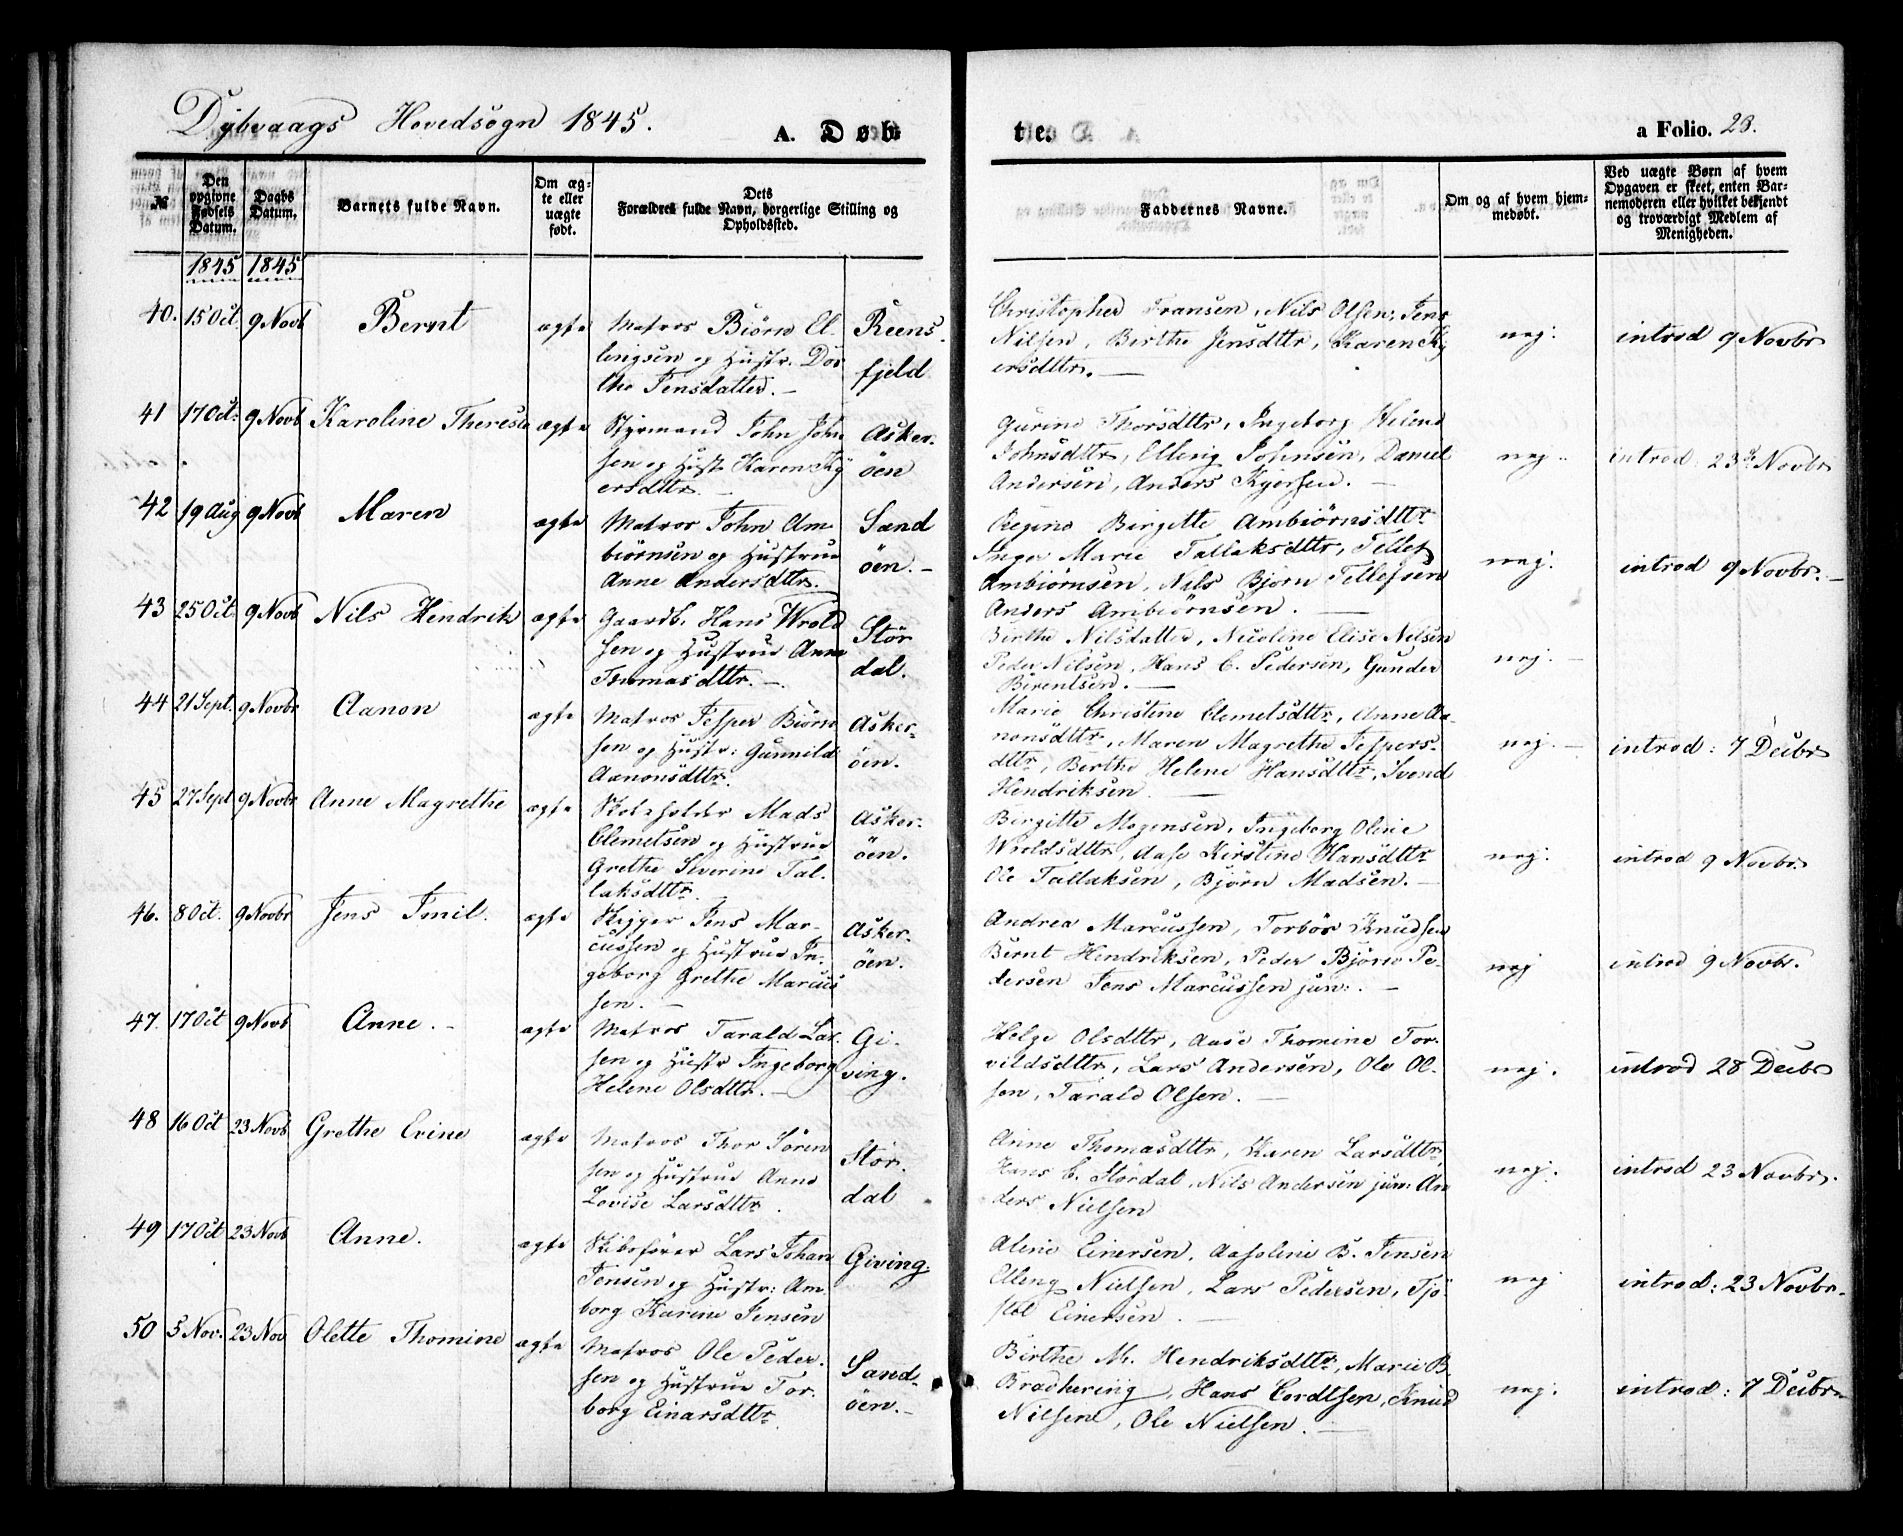 Dybvaags Hovedsogn 1845.
A. Døb-
te.
a Folio. 23.
№
Den opgivne Fødsels Datum.
Daabs Datum.
Barnets fulde Navn.
Om ægte eller uægte født.
Dets Forældres fulde Navn, borgerlige Stilling og Opholdssted.
Faddernes Navne.
Om og af hvem hjemmedøbt.
Ved uægte Børn af hvem Opgaven er skeet, enten Barnemoderen eller hvilket bekjendt og troværdigt Medlem af Menigheden.
1845 1845
40. 15 Oct. 9 Novb Bernt ægte Matros Biörn El-
lingsen og Hustr. Dor
the Jensdatter.
Reens
fjeld.
Christopher Fransen, Nils Olsen, Jens
Nilsen, Birthe Jensdttr, Karen Kj
ersdttr.
nej. introd 9 Novbr
41 17 Oct. 9 Novb Karoline Therese ægte Styrmand John John
sen og Hustr Karen Kj
ersdttr.
Asker-
öen
Gurine Thorsdttr, Ingeborg Helene
Johnsdttr, Elling Johnsen, Daniel
Andersen, Anders Kjörsen.
nej. introd. 23de Novbr
42 19 Aug 9 Novb Maren ægte Matros John Am
biörnsen og Hustrue
Anne Andersdttr.
Sand
öen.
Regine Birgitte Ambiörnsdttr
Inger Marie Tallaksdttr, Tellef
Ambiörnsen, Nils Bjørn Tellefsen
Anders Ambiörnsen.
nej. introd 9 Novbr.
43 25 Oct 9 Novb Nils Hendrik ægte Gaardb. Hans Wrold
sen og Hustrue Anne
Thomasdttr.
Stör
dal.
Birthe Nilsdatter, Nicoline Elise Nilsen
Peder Nilsen, Hans C. Pedersen, Gunder
Berentsen.
nej.
44 21 Sept. 9 Novbr Aanon ægte Matros Jesper Biörn
sen og Hustr: Gunnild
Aanonsdttr.
Asker-
öen.
Marie Christine Clemetsdttr, Anne Aa-
nonsdttr, Maren Magrethe Jespers-
dttr, Berthe Helene Hansdttr, Svend
Hendriksen
nej. introd: 7 Decbr
45 27 Sept 9 Novbr Anne Magrethe ægte Skoleholder Mads
Clemetsen og Hustrue
Grethe Severine Tal-
laksdttr.
Asker-
öen.
Birgitte Mogensen, Ingeborg Oline
Wroldsdttr, Aase Kirstine Hansdttr
Ole Tallaksen, Björn Madsen.
nej. introd 9 Novbr.
46. 8 Oct. 9 Novbr Jens Emil. ægte Skipper Jens Mar-
cussen og Hustrue In-
geborg Grethe Marcus
sen.
Asker-
öen.
Andrea Marcussen, Torbör Knudsen
Bernt Hendriksen, Peder Björn Pe-
dersen Jens Marcussen jun:.
nej introd 9 Novbr.
47. 17 Oct 9 Novb Anne. ægte Matros Tarald Lar-
sen og Hustr Ingeborg
Helene Olsdttr.
Gi-
ving.
Helge Olsdttr, Aase Thomine Tor-
vildsdttr, Lars Andersen, Ole Ol-
sen, Tarald Olsen.
nej. introd 28 Decbr
48 16 Oct 23 Novb Grethe Evine ægte Matros Thor Sören
sen og Hustrue Anne
Lovise Larsdttr.
Stör-
dal
Anne Thomasdttr, Karen Larsdttr
Hans C. Stördal, Nils Andersen jun: An
ders Nielsen
nej. introd 23 Novbr.
49 17 Oct 23 Novb Anne. ægte Skibsförer Lars Johan
Jensen og Hustr: Am-
borg Karine Jensen
Giving.
Aline Einersen, Aasoline B. Jensen
Elling Nielsen, Lars Pedersen, Tjö-
stöl Einersen.
nej introd: 23 Novbr.
50 5 Nov. 23 Nov Olette Thomine ægte Matros Ole Peder-
sen og Hustrue Tor-
borg Einarsdttr.
Sand-
öen.
Birthe M. Hendriksdttr, Marie B.
Bradhering, Hans Cordtsen, Knud
Nilsen, Ole Nielsen.
nej. introd: 7 Decbr